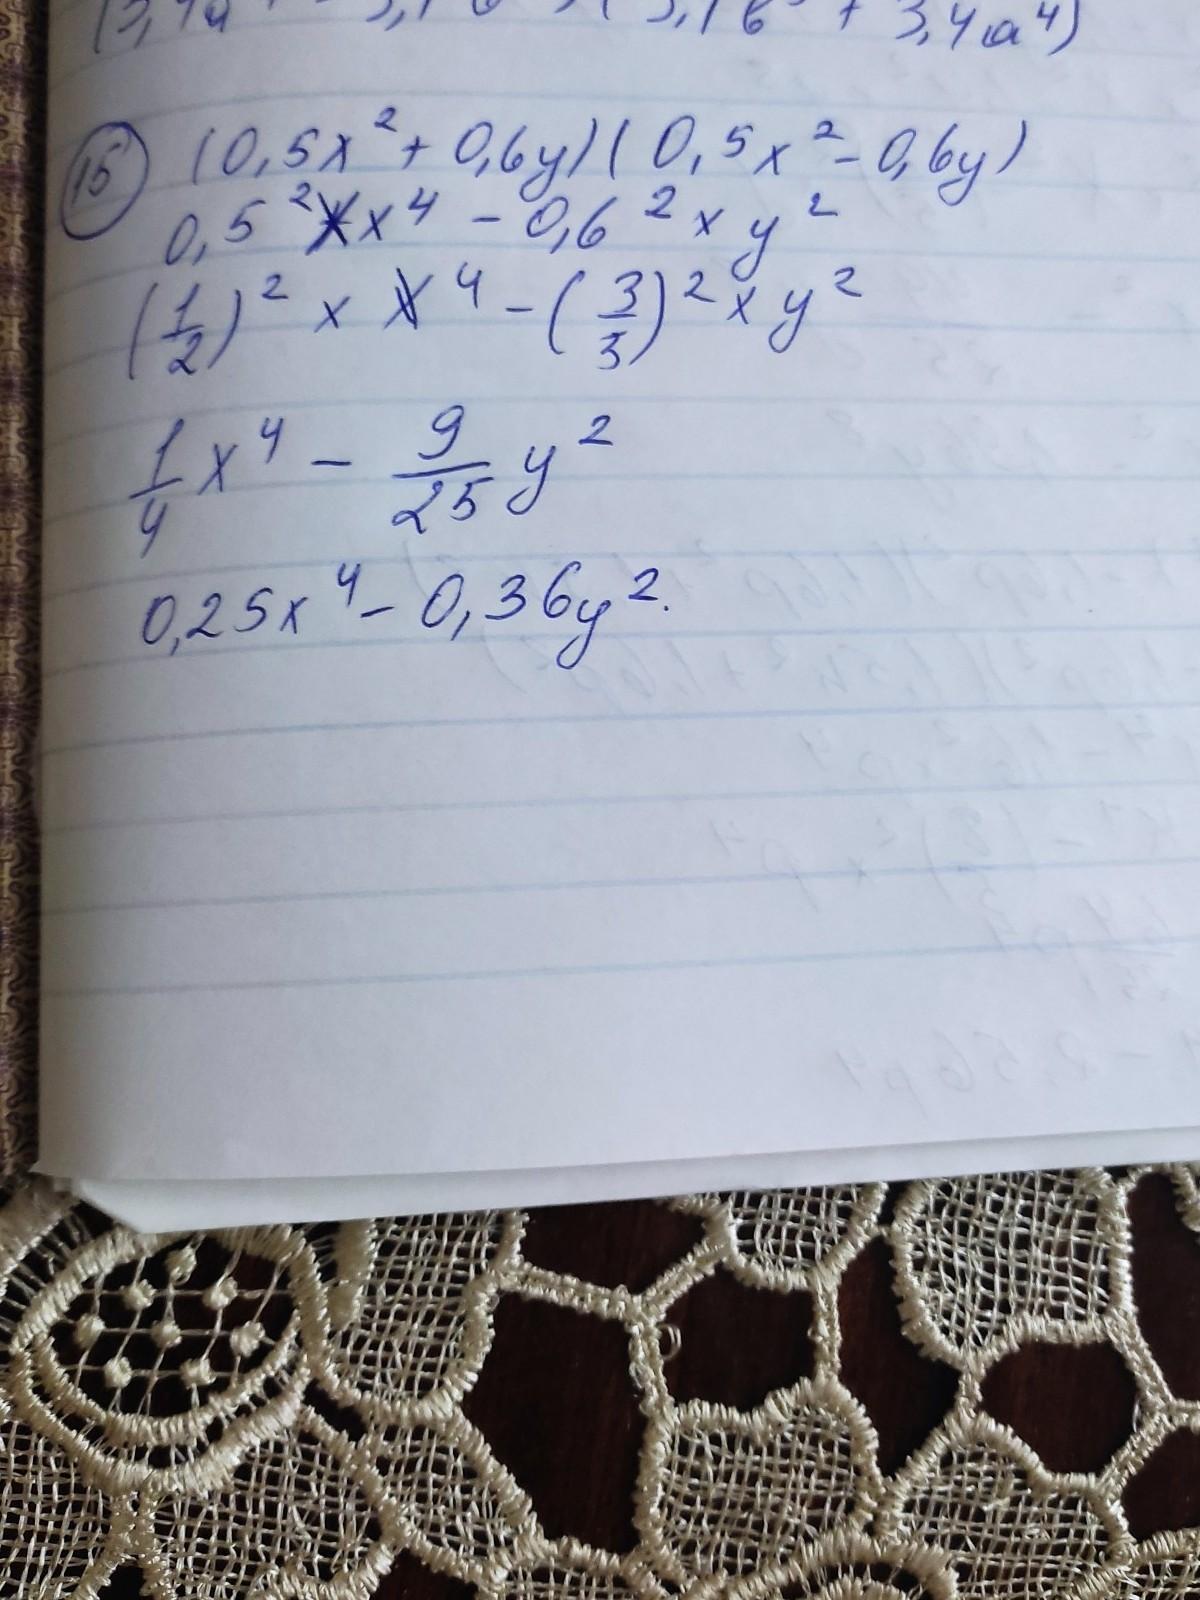 + 3,4a⁴)
15 (0,5x² + 0,6y)(0,5x² - 0,6y)
0,5² x x⁴ - 0,6² x y²
(1/2)² x x⁴ - (3/5)² x y²
1/4 x⁴ - 9/25 y²
0,25x⁴ - 0,36y².